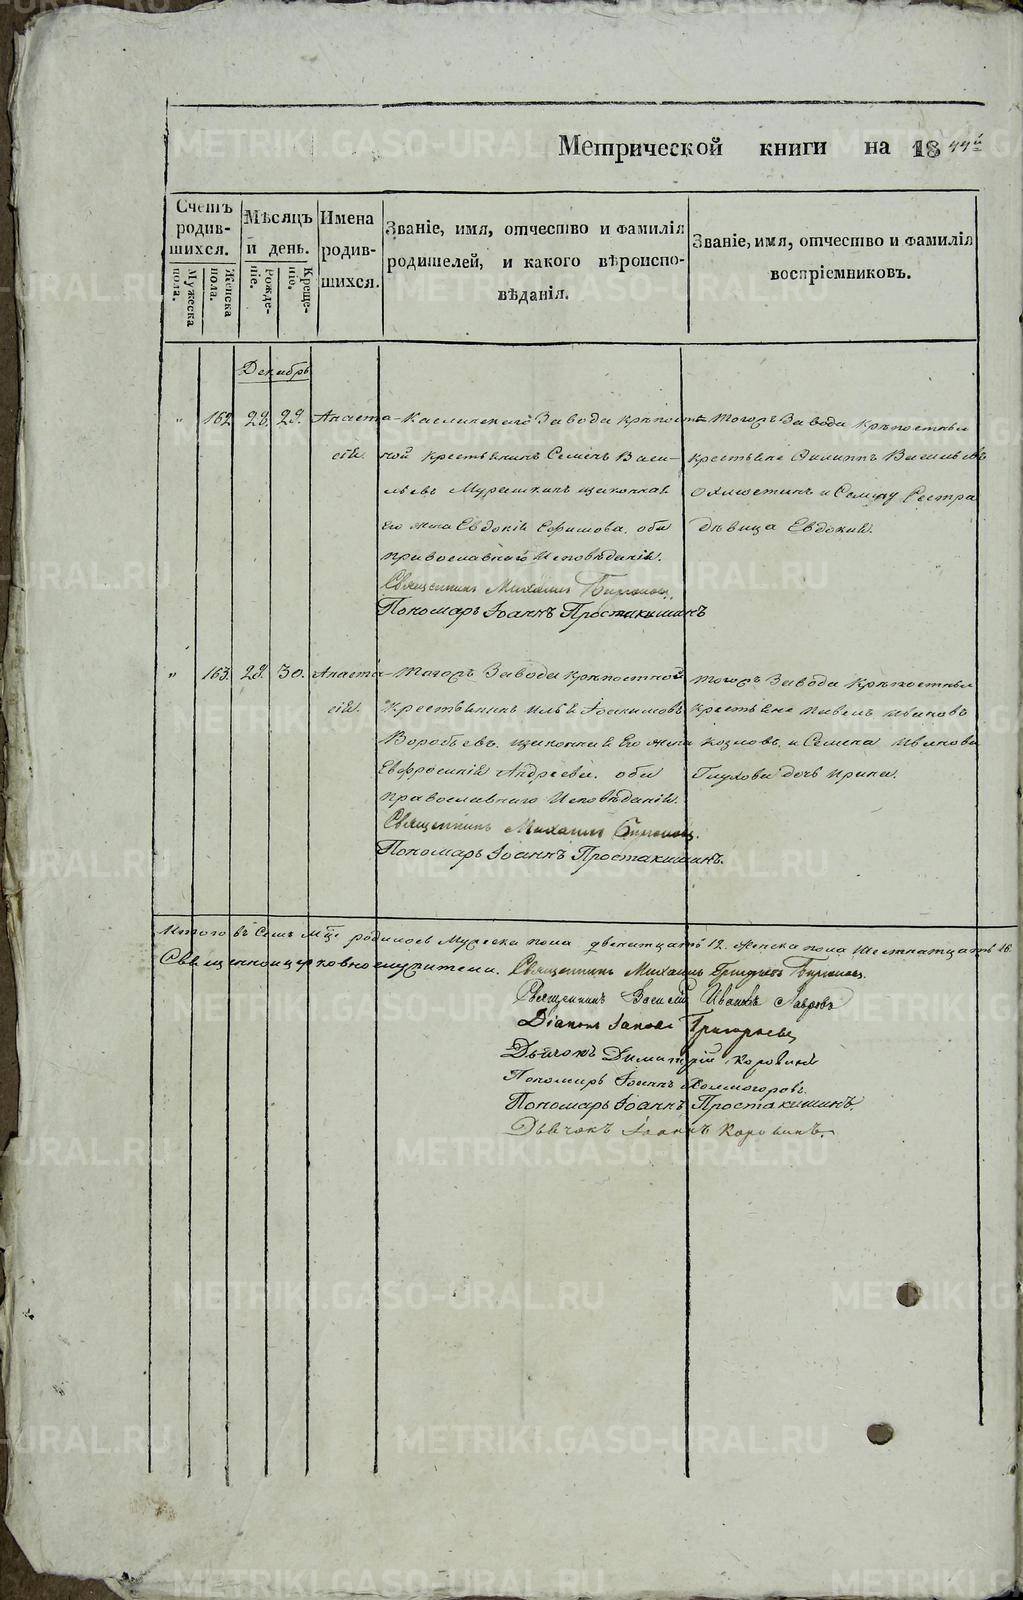 Метрической книги на 1844й
Счетъ родив-шихся.
Мужеска пола.
Женска пола.
Мѣсяцъ и день.
Рожде-ніе.
Креще-ніе.
Имена родив-шихся.
Званіе, имя, отчество и фамилія
родителей, и какого вѣроиспо-
вѣданія.
Званіе, имя, отчество и фамилія
воспріемниковъ.
Декабрь
" 162 28. 29. Анаста-
сія.
Каслинскаго Завода крѣпост-
ной крестьянинъ Семенъ Васи-
льевъ законная
Его жена Евдокія Ефимова. оба
православнаго Исповѣданія.
Священникъ Михаилъ
Пономарь Іоаннъ Простакишинъ
Тогожъ Завода крѣпостные
крестьяне Филиппъ Васильевъ
и сестра
дѣвица Евдокия.
" 163. 29. 30. Анаста-
сія.
Тогожъ Завода крѣпостной
крестьянинъ Илья Іоакимовъ
Воробьевъ. законная Его жена
Евфросинія Андреева. оба
православнаго Исповѣданія.
Священникъ Михаилъ
Пономарь Іоаннъ Простакишинъ.
Тогожъ Завода крѣпостные
крестьяне Павелъ Ивановъ
Козловъ. и Семена Иванова
Глухова дочь Ирина.
Итого въ семъ мцѣ родилось Мужеска пола двенатцать 12. Женска пола шестнатцать 16.
Священноцерковнослужители. Священникъ Михаилъ
Священникъ Василій Ивановъ Лавровъ
Діаконъ Іаковъ Григорьевъ
Дьячокъ Димитрій Коровинъ
Пономарь Іоаннъ Холмогоровъ.
Пономарь Іоаннъ Простакишинъ.
Дьячокъ Іоаннъ Коровинъ.
METRIKI.GASO-URAL.RU